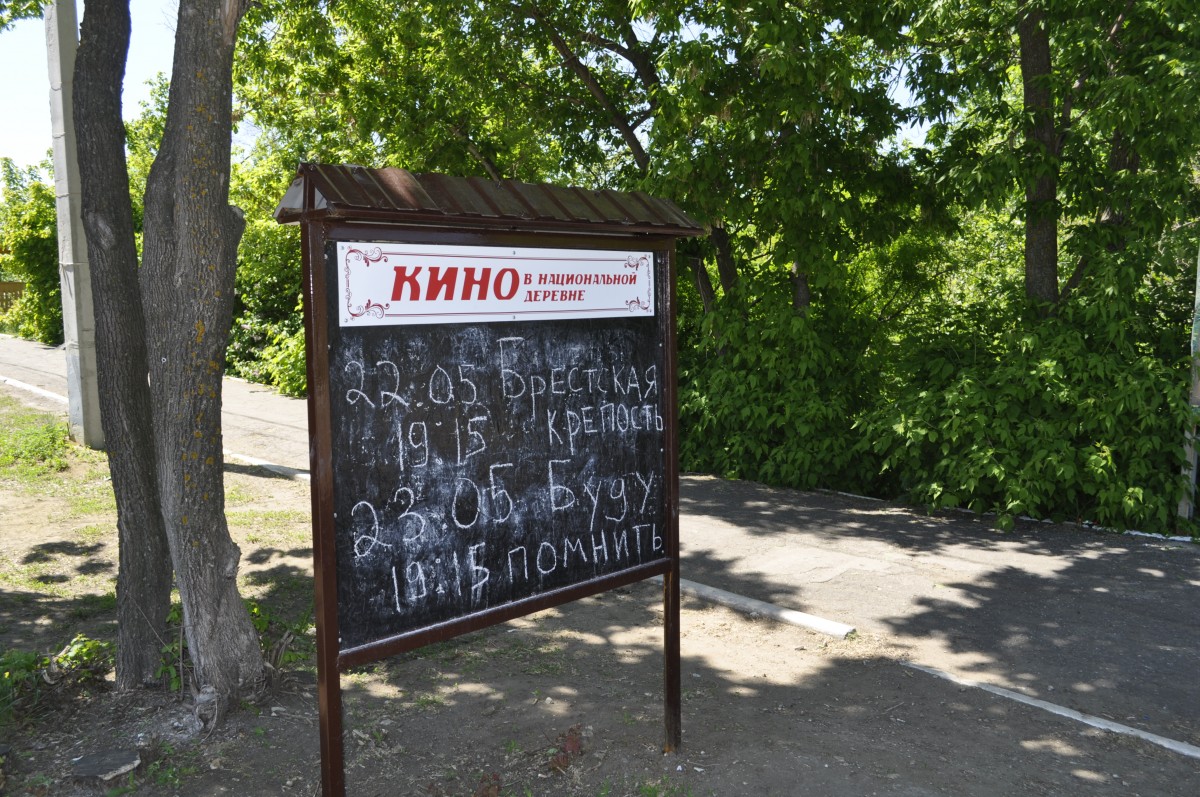 КИНО В НАЦИОНАЛЬНОЙ
ДЕРЕВНЕ
22.05 Брестская
19:15 крепость
23.05 Буду
19:15 помнить